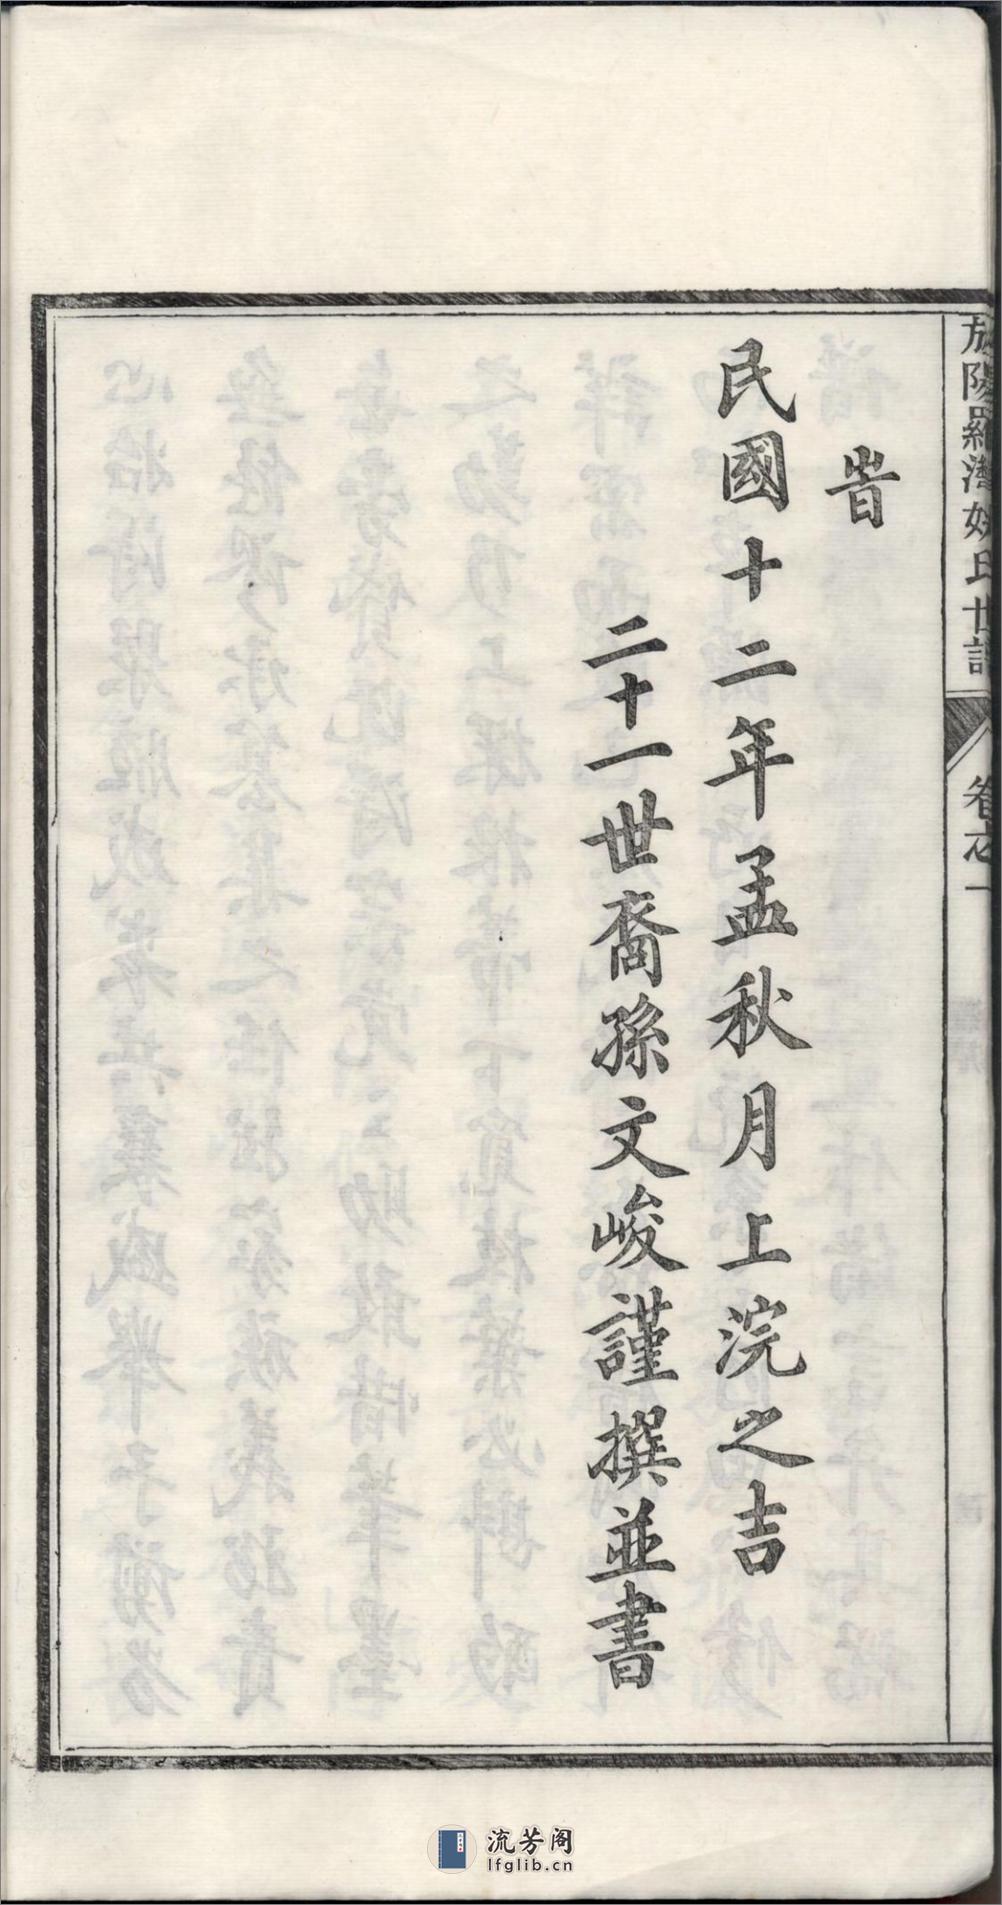 陽羅灣姚氏世譜
卷之一
旹
民國十二年孟秋月上浣之吉
二十一世裔孫文峻謹撰並書
流芳阁
lfglib.cn